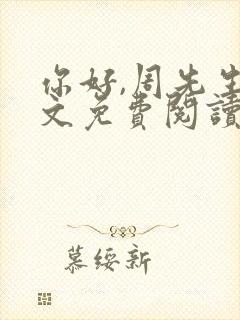 你好,周先生
文免費閱讀
慕綏新